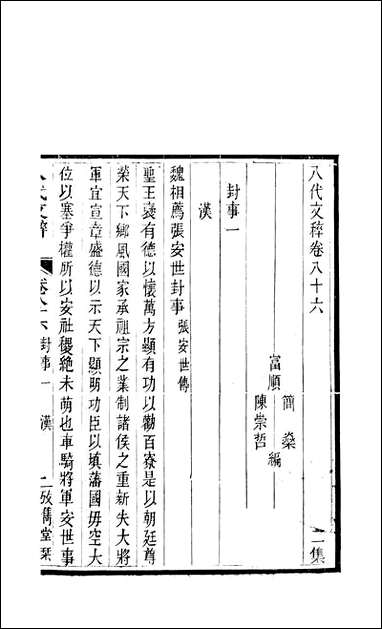 八代文稡卷八十六　二集
富順　簡燊
　　　陳崇哲　編
封事一
漢
魏相薦張安世封事　張安世傳
聖王襃有德以懷萬方顯有功以勸百寮是以朝廷尊
榮天下鄉風國家承祖宗之業制諸侯之重新失大將
軍宜宣章盛德以示天下顯明功臣以填藩國毋空大
位以塞爭權所以安社稷絶未萌也車騎將軍安世事
八代文稡　卷八十六　封事一　漢　一　攷雋堂栞